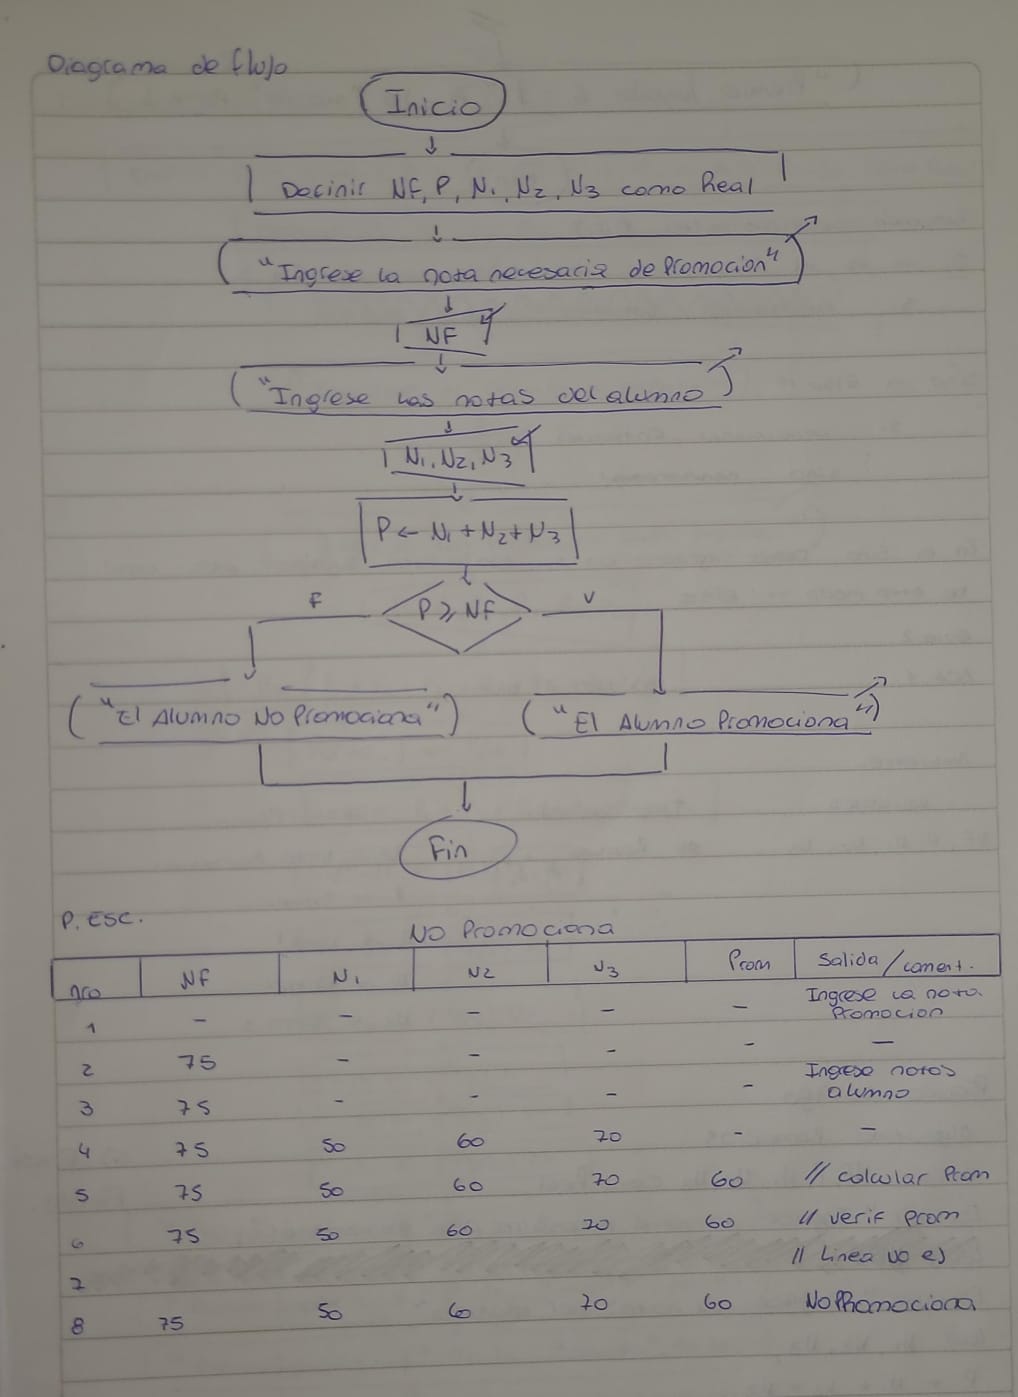 Diagrama de flujo
Inicio
Definir NF, P, N1, N2, N3 como Real
"Ingrese la nota necesaria de Promocion"
NF
"Ingrese las notas del alumno
N1, N2, N3
P ← N1 + N2 + N3
F P ≥ NF V
"El Alumno No Promociona" "El Alumno Promociona"
Fin
P. Esc.
No Promociona
nro NF N1 N2 N3 Prom Salida/coment.
1 - - - - - Ingrese la nota Promocion
2 75 - - - - -
3 75 - - - - Ingrese notas alumno
4 75 50 60 70 - -
5 75 50 60 70 60 // calcular Prom
6 75 50 60 70 60 // verif prom
7 // Linea no ej
8 75 50 60 70 60 No Promociona